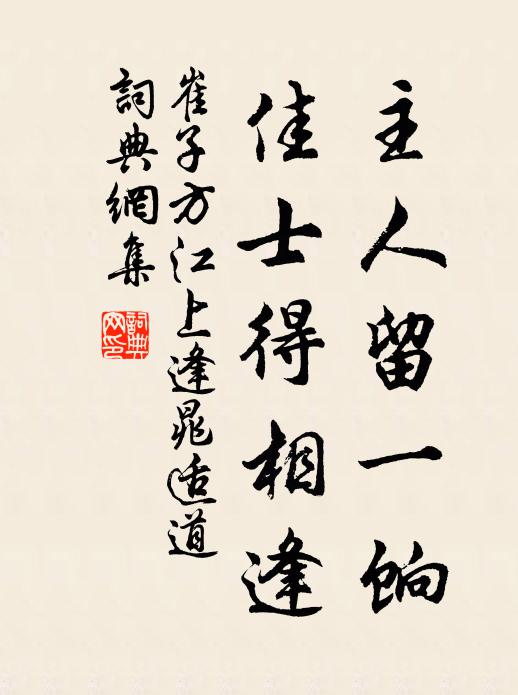 主人留一餉
佳士得相逢
崔子方江上逢晁适道
詞典網集
詞典网印